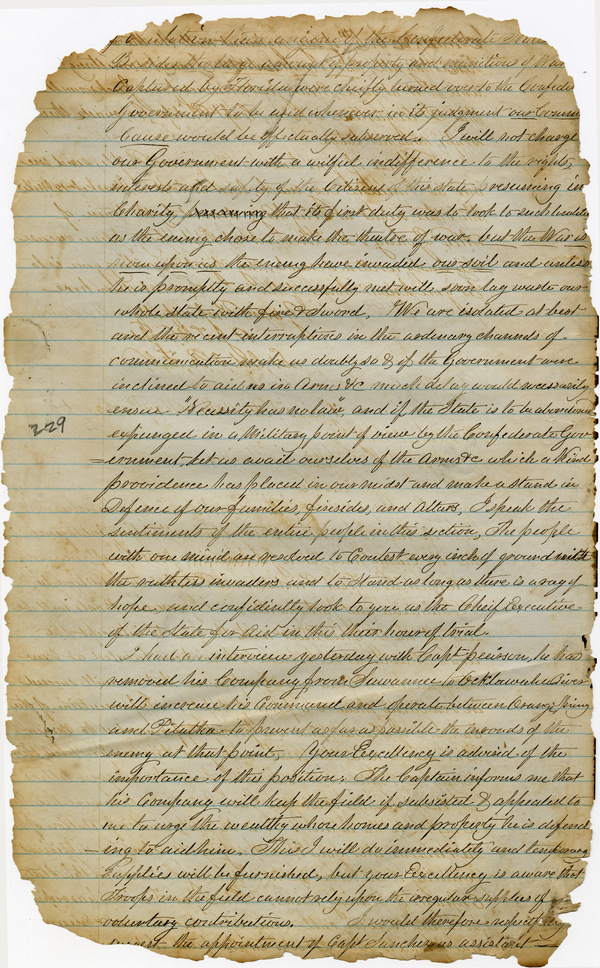 of the Confederate
Besides the large amount of property and munitions of War
Captured by Florida were chiefly turned over to the Confed
Government to be used whenever in its judgment our Comm
Cause would be effectually subserved. I will not charge
our Government with a wilful indifference to the rights,
interests and safety of the Citizens of this state presuming in
Charity that its first duty was to look to such localities
as the enemy chose to make the theatre of war. but the War is
now upon us the enemy have invaded our soil and unless
he is promptly and successfully met will soon lay waste our
whole state with fire & sword. We are isolated at best
and the recent interruptions in the ordinary channels of
communication make us doubly so & if the Government were
inclined to aid us in Arms &c much delay would necessarily
ensue "Necessity has no law", and if the State is to be abandoned
229
expunged in a Military point of view by the Confederate Gov-
=ernment, let us avail ourselves of the Arms &c which a Kind
providence has placed in our midst and make a stand in
Defence of our families, firesides, and Altars. I speak the
sentiments of the entire people in this section, The people
with one mind are resolved to Contest every inch of ground with
the ruthless invaders and to Stand as long as there is a ray of
hope and confidently look to you as the Cheif Executive
of the State for Aid in this their hour of trial.
I had an interview yesterday with Capt Pearson, he has
removed his Company from Suwannee to Ocklawaha River
will increase his Command and operate between Orange Spring
and Pilatka to prevent as far as possible the inroads of the
enemy at that point, Your Excellency is advised of the
importance of this position. The Captain informs me that
his Company will keep the field if subsisted & appealed to
me to urge the wealthy whose homes and property he is defend
-ing to aid him. This I will do immediately and temporary
Supplies will be furnished, but your Excellency is aware that
Troops in the field cannot rely upon the irregular supplies of
voluntary contributions. I would therefore respectfully
suggest the appointment of Capt Sanchez as assistant